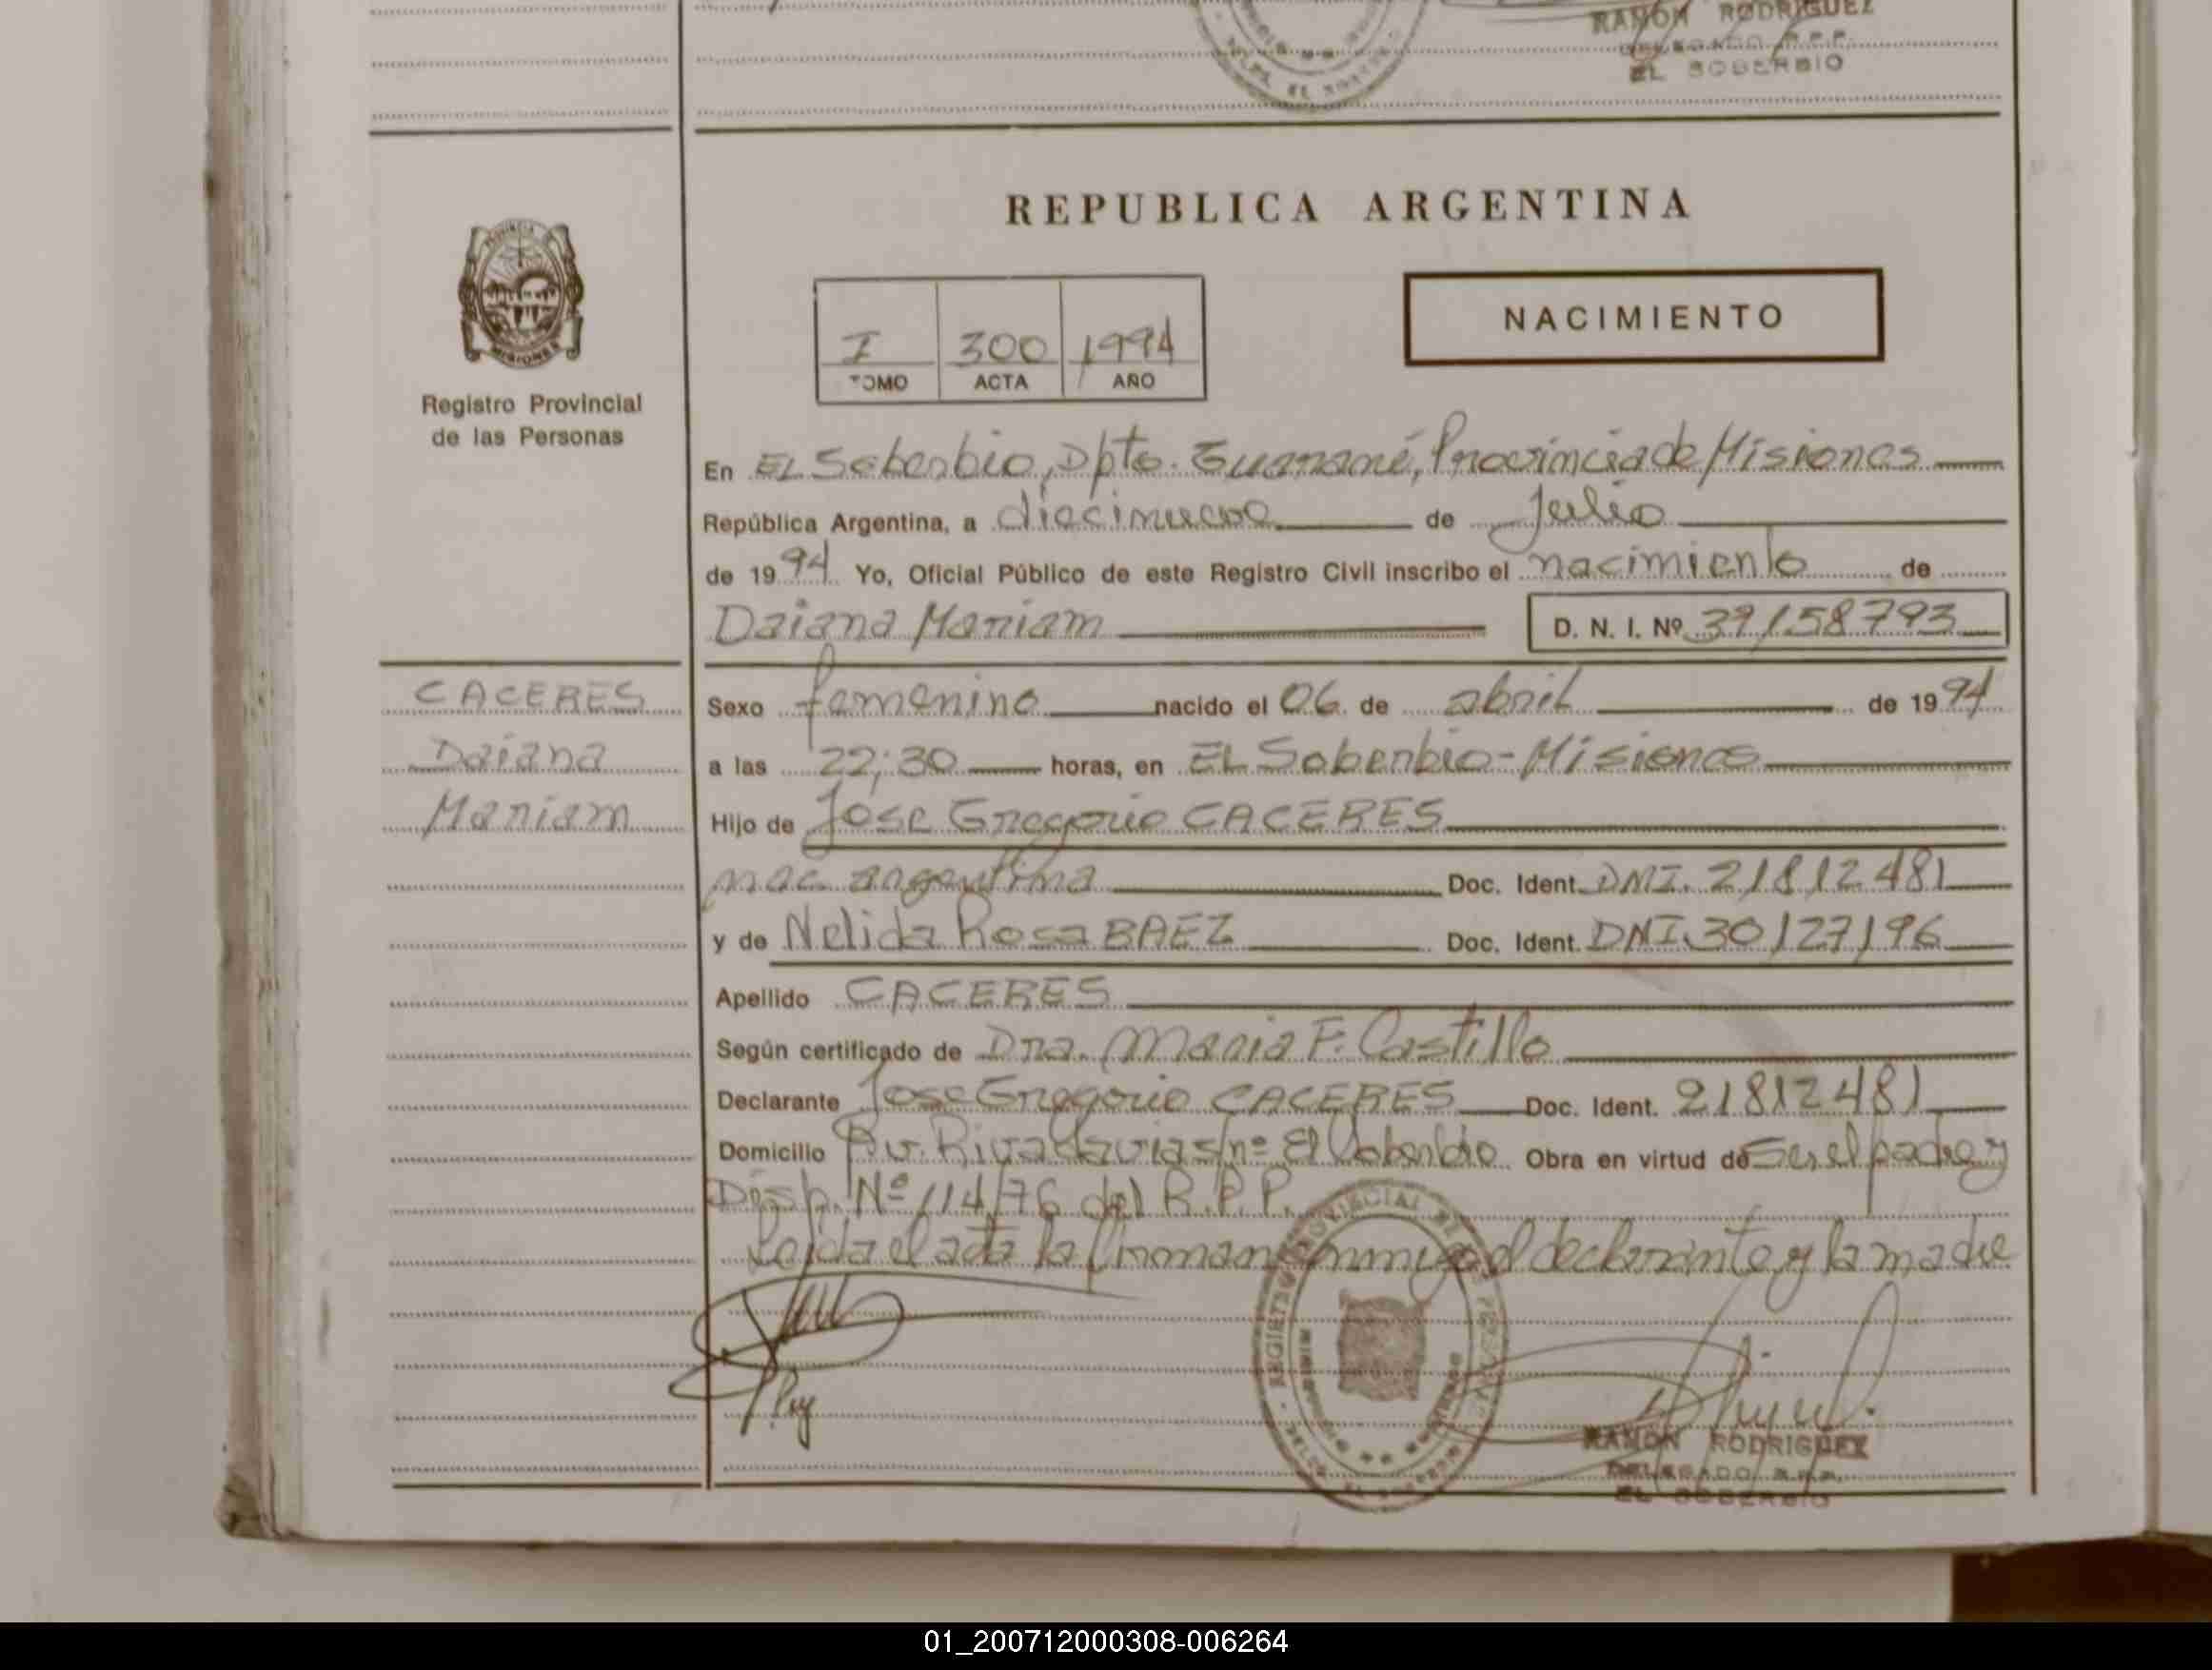 RAMON RODRIGUEZ
DELEGADO R.P.P.
EL SOBERBIO
REPUBLICA ARGENTINA
PROVINCIA
MISIONES
Registro Provincial
de las Personas
I 300 1994
TOMO ACTA AÑO
NACIMIENTO
En EL Soberbio, Dpto. Guaraní, Provincia de Misiones
República Argentina, a diecinueve de Julio
de 1994 Yo, Oficial Público de este Registro Civil inscribo el nacimiento de
Daiana Mariam D. N. I. Nº 39158793
CACERES
Daiana
Mariam
Sexo femenino nacido el 06 de abril de 1994
a las 22;30 horas, en EL Soberbio - Misiones
Hijo de Jose Gregorio CACERES
nac. argentina Doc. Ident. DNI. 21812481
y de Nelida Rosa BAEZ Doc. Ident. DNI. 30127196
Apellido CACERES
Según certificado de Dra. Maria F. Castillo
Declarante Jose Gregorio CACERES Doc. Ident. 21812481
Domicilio Av. Rivadavia s/nº El Soberbio Obra en virtud de Ser el padre y
Disp. Nº 114/76 del R.P.P.
Leida el acta la firman conmigo el declarante y la madre
RAMON RODRIGUEZ
DELEGADO R.P.P.
EL SOBERBIO
01_200712000308-006264